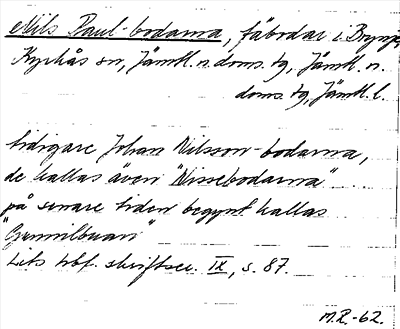 Nils Paul-bodarna, fäbodar i Brynje,
Kyrkås sn, Jämtl. n. doms. tg, Jämtl. n.
doms. tg, Jämtl. l.
tidigare Johan Nilsson-bodarna,
de kallas även "Nissebodarna"
på senare tiden begynt kallas
"Gunnilbuan"
Lits hbf. skriftser. IX, s. 87.
M.R.-62.